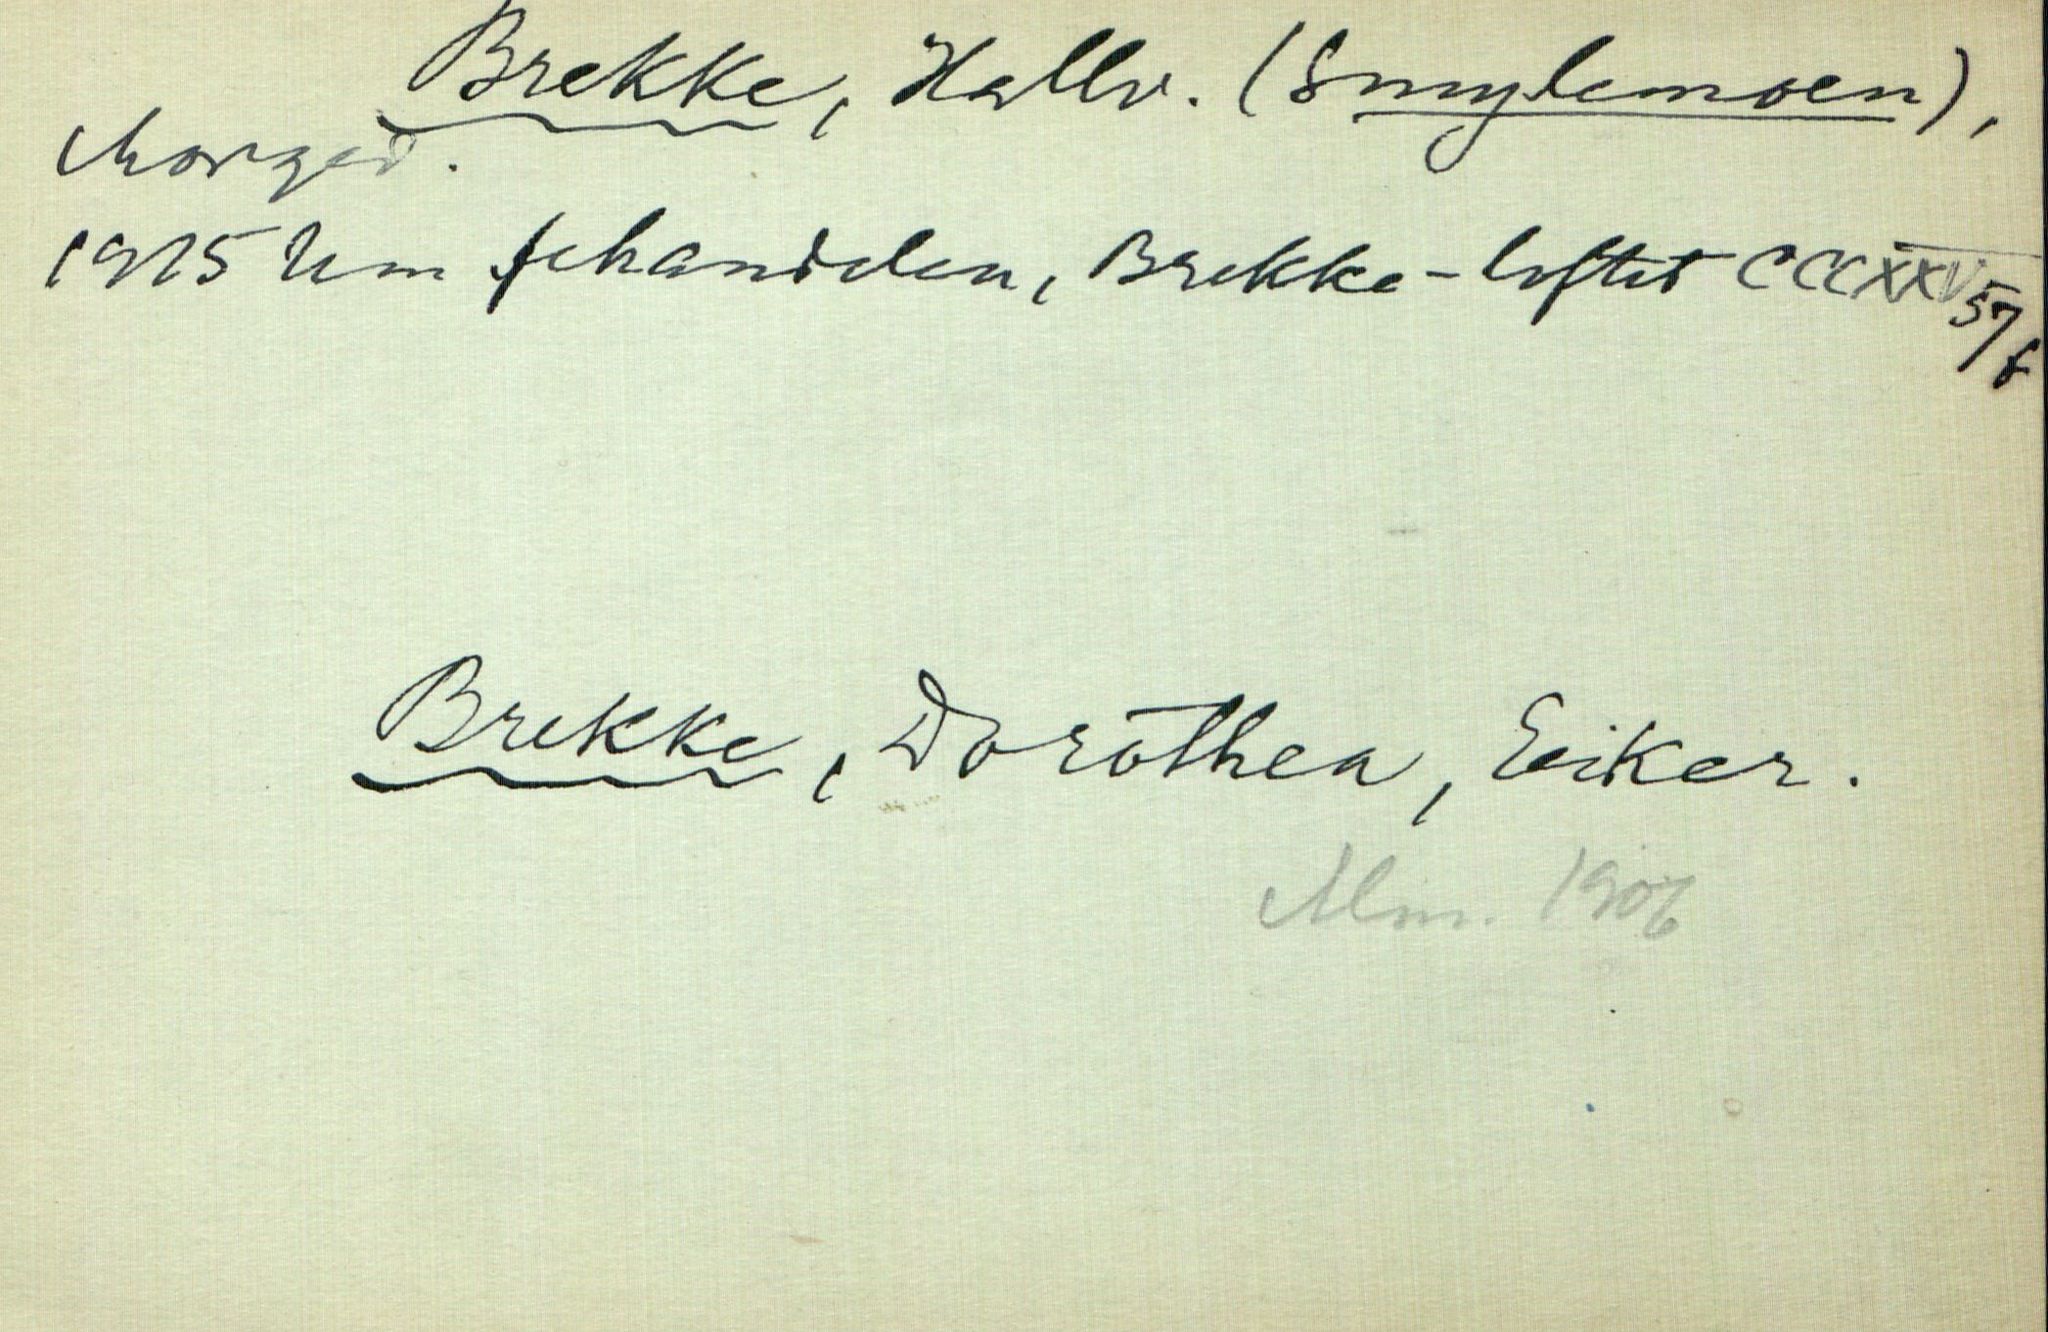 Brekke, Hallv. (Smylemoen),
Morgedal.
1925 Um fehandelen, Brekke-loftet CCCXXV 57/f
Brekke, Dorothea, Eiker.
Mm. 1906